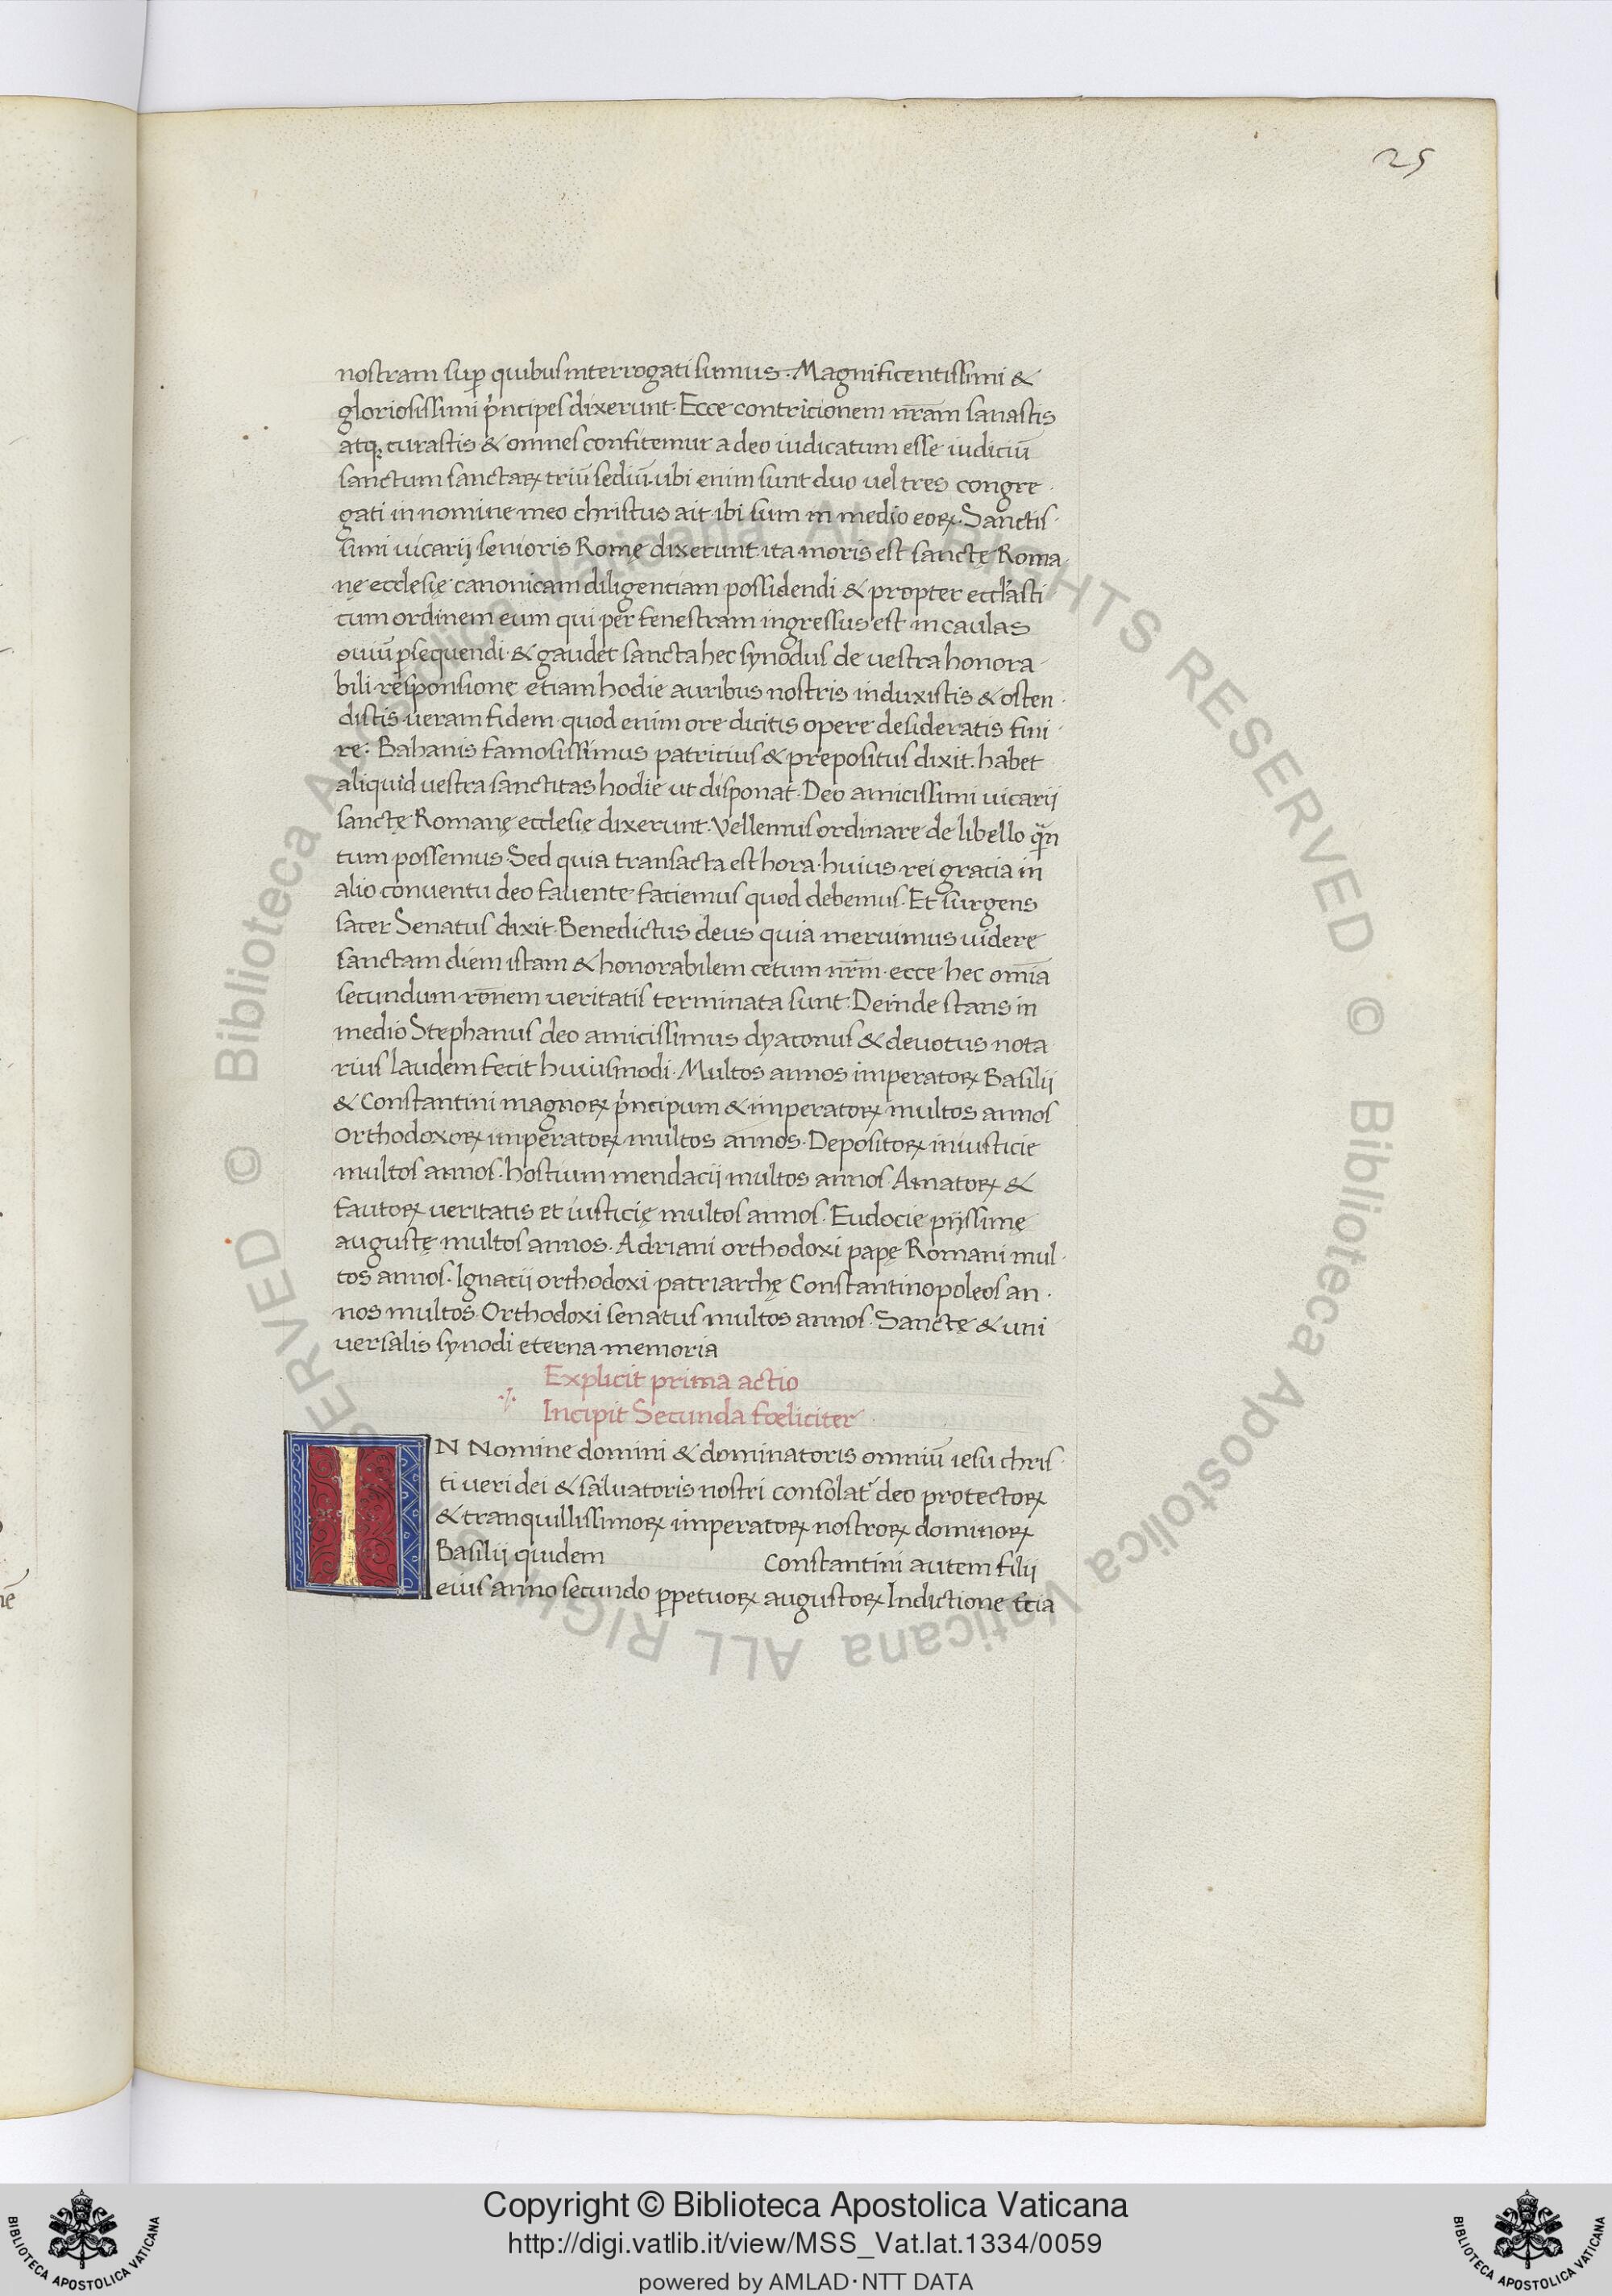 25
nostram suꝑ quibus interrogati sumus. Magnificentissimi &
gloriosissimi pͥncipes dixerunt. Ecce contricionem nr̄am sanastis
atqꝫ curastis & omnes confitemur a deo iudicatum esse iudiciū
sanctum sanctaꝝ triū sediū. ubi enim sunt duo vel tres congre
gati in nomine meo christus ait ibi sum in medio eoꝝ. Sanctis
simi uicarij senioris Romę dixerunt. ita moris est sanctę Roma
nę ecclesię canonicam diligentiam possidendi & propter eccl'asti
cum ordinem eum qui per fenestram ingressus est in caulas
ouiū ꝑsequendi. & gaudet sancta hec synodus de vestra honora
bili responsione etiam hodie auribus nostris induxistis & osten
distis veram fidem quod enim ore dicitis opere desideratis fini
re: Bahanis famosissimus patricius & prepositus dixit. habet
aliquid vestra sanctitas hodie ut disponat. Deo amicissimi uicarij
sanctę Romanę ecclesię dixerunt. Vellemus ordinare de libello q̄n
tum possemus. Sed quia transacta est hora. huius rei gracia in
alio conuentu deo fauente faciemus quod debemus. Et surgens
sacer Senatus dixit. Benedictus deus quia meruimus uidere
sanctam diem istam & honorabilem cetum nr̄m. ecce hec om̄ia
secundum rōnem veritatis terminata sunt. Deinde stans in
medio Stephanus deo amicissimus dyaconus & devotus nota
rius laudem fecit huiusmodi. Multos annos imperatoꝝ Basilij
& Constantini magnoꝝ pͥncipum & imperatoꝝ multos annos
Orthodoxoꝝ imperatoꝝ multos annos. Depositoꝝ iniusticie
multos annos. hostium mendacij multos annos. Amatoꝝ &
fautoꝝ veritatis et iusticię multos annos. Eudocie pijssimę
augustę multos annos. Adriani orthodoxi papę Romani mul
tos annos. Ignatii orthodoxi patriarchę Constantinopoleos an
nos multos. Orthodoxi senatus multos annos. Sanctę & uni
versalis synodi eterna memoria
Explicit prima actio
Incipit Secunda fœliciter
IN Nomine domini & dominatoris omniū iesu chris
ti veri dei & saluatoris nostri consolat' deo protectoꝝ
& tranquillissimoꝝ imperatoꝝ nostroꝝ dominoꝝ
Basilij quidem Constantini autem filij
eius anno secundo ꝑpetuoꝝ augustoꝝ Indictione tcia
nē
© Biblioteca Apostolica Vaticana ALL RIGHTS RESERVED
© Biblioteca Apostolica Vaticana ALL RIGHTS RESERVED
BIBLIOTECA APOSTOLICA VATICANA
Copyright © Biblioteca Apostolica Vaticana
http://digi.vatlib.it/view/MSS_Vat.lat.1334/0059
powered by AMLAD · NTT DATA
BIBLIOTECA APOSTOLICA VATICANA